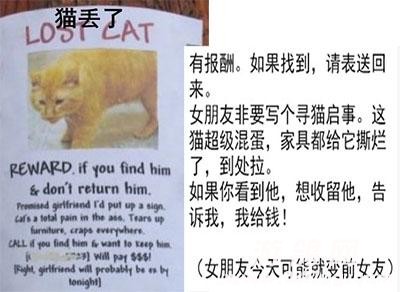 猫丢了
LOST CAT
REWARD. if you find him
& don't return him.
Promised girlfriend I'd put up a sign.
Cat's a total pain in the ass. Tears up
furniture, craps everywhere.
CALL if you find him & want to keep him.
Will pay $$$!
[Right, girlfriend will probably be ex by
tonight]
有报酬。如果找到，请表送回
来。
女朋友非要写个寻猫启事。这
猫超级混蛋，家具都给它撕烂
了，到处拉。
如果你看到他，想收留他，告
诉我，我给钱！
（女朋友今天可能就变前女友）